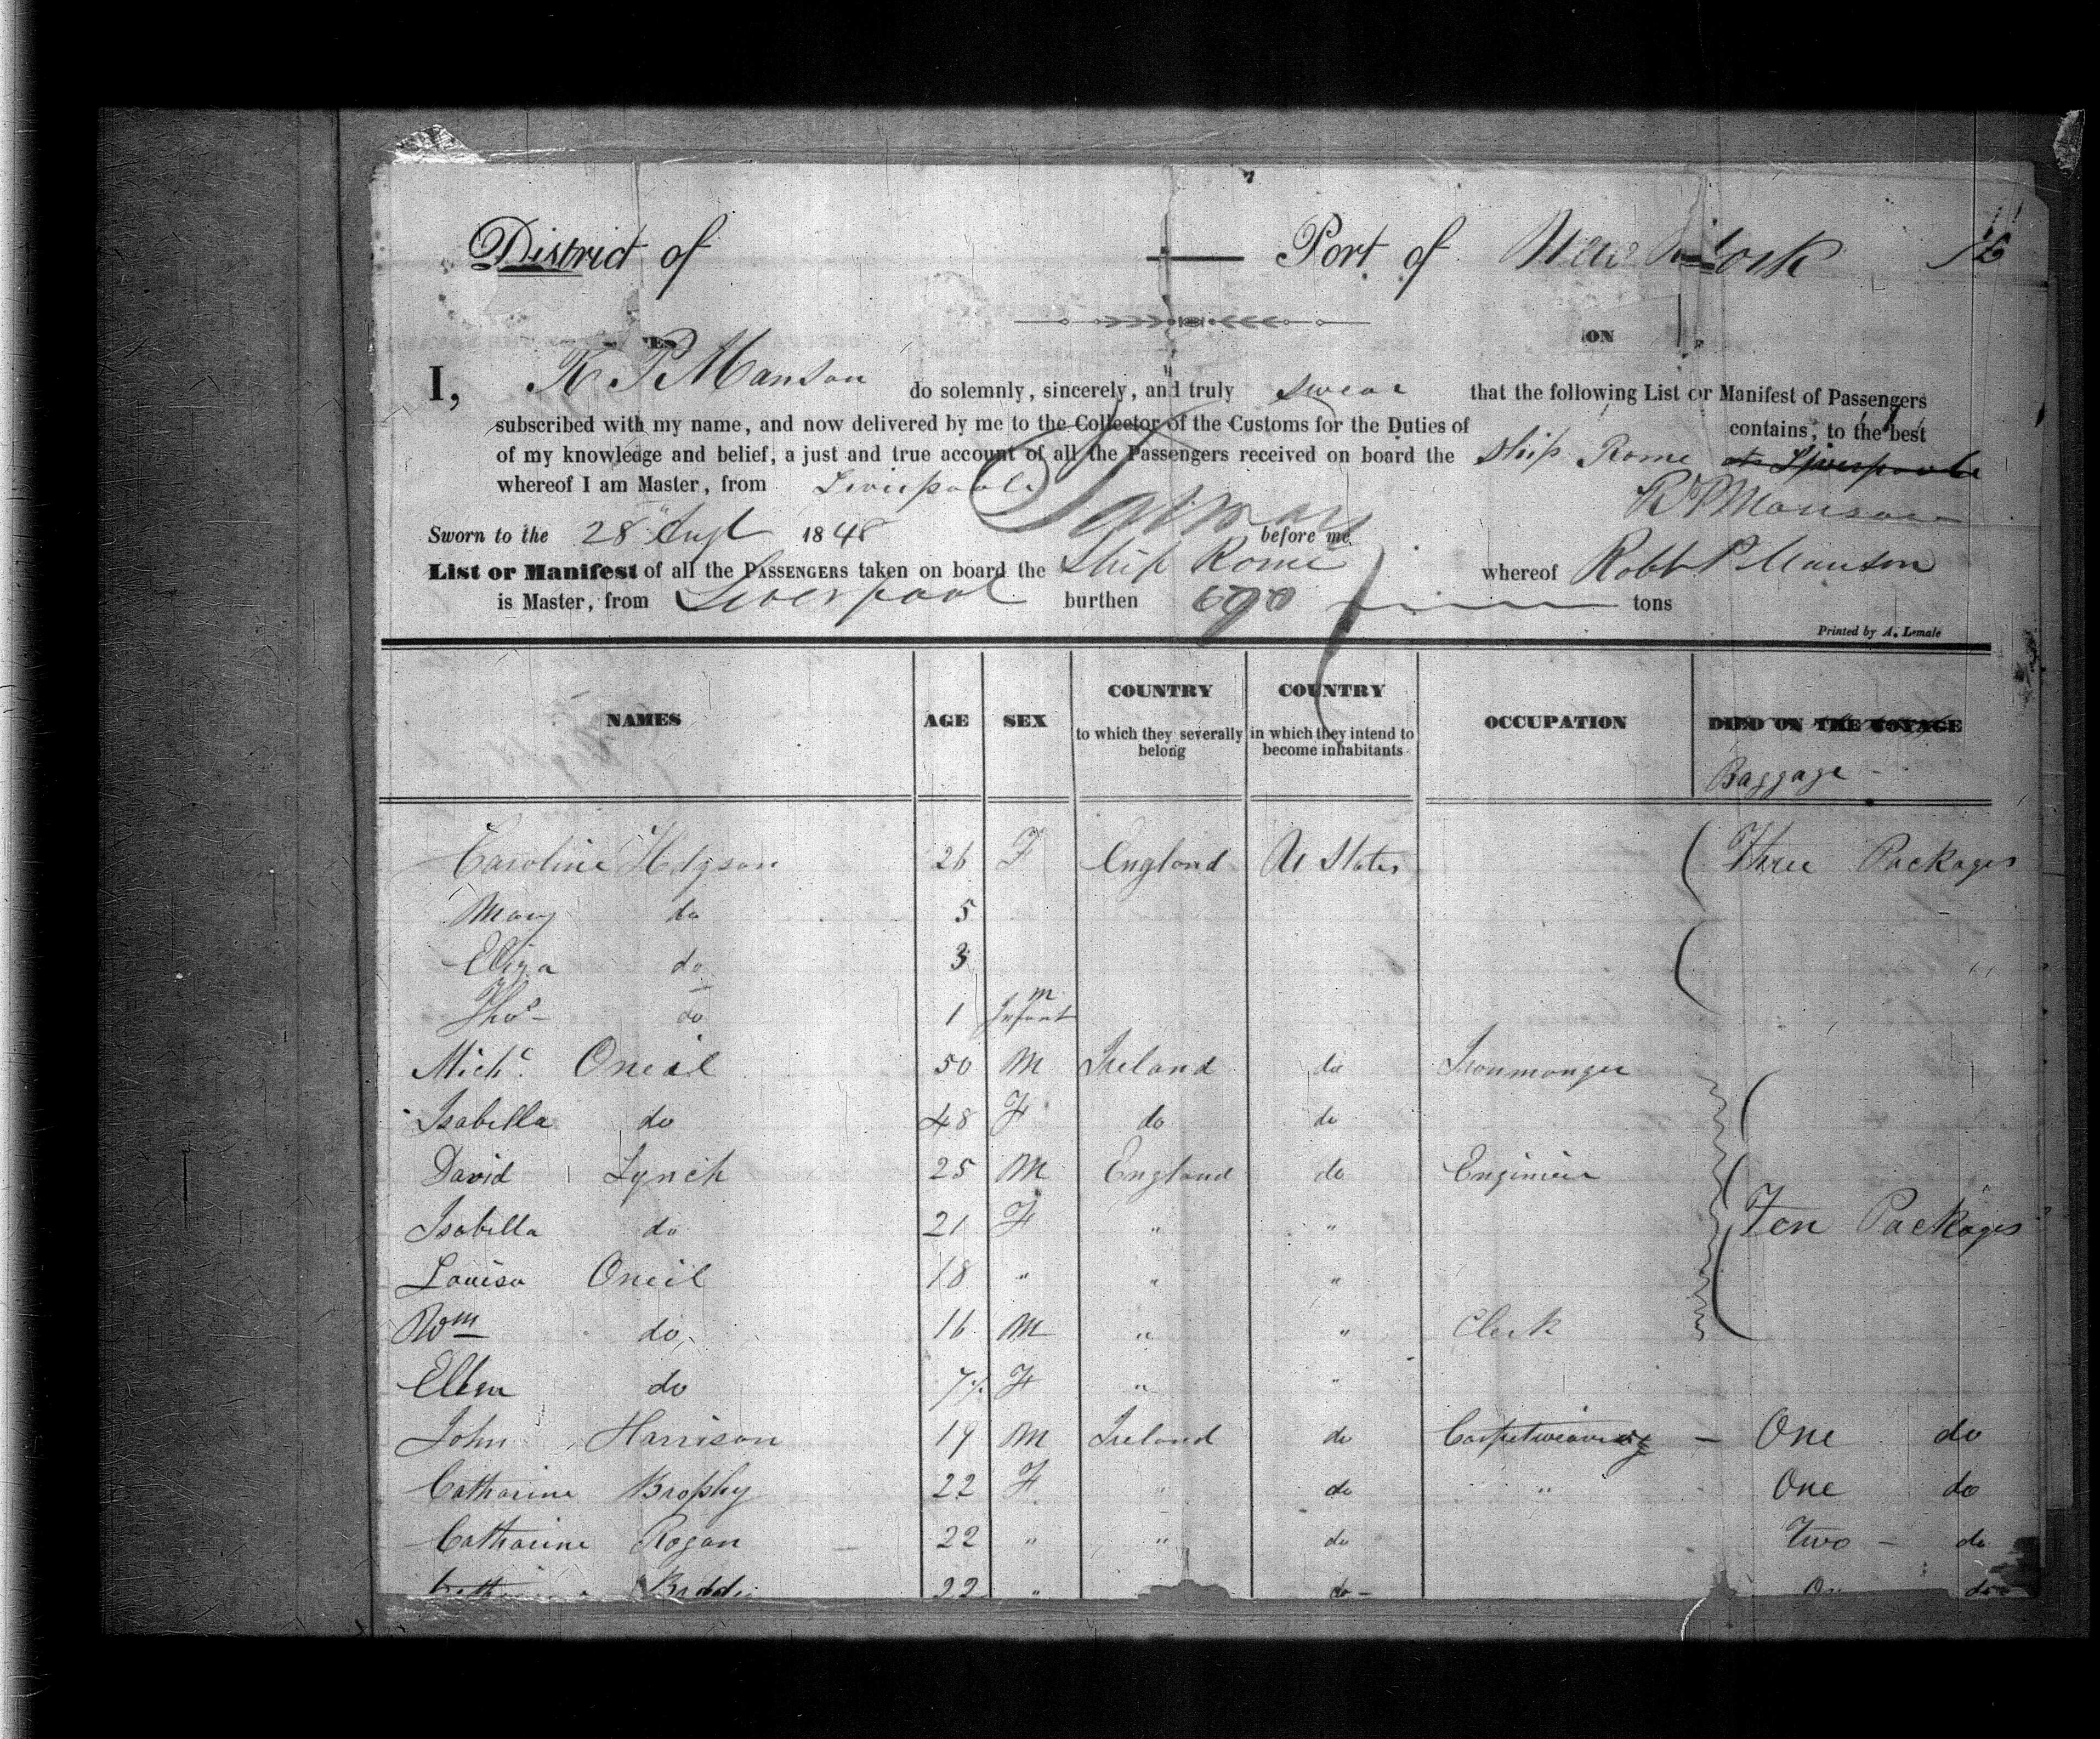 District of — Port of New York
ON
I, R P Manson do solemnly, sincerely, and truly swear that the following List or Manifest of Passengers
subscribed with my name, and now delivered by me to the Collector of the Customs for the Duties of contains, to the best
of my knowledge and belief, a just and true account of all the Passengers received on board the Ship Rome at Liverpool
whereof I am Master, from Liverpool
R P Manson
Sworn to the 28 Augt 1848 before me
List or Manifest of all the PASSENGERS taken on board the Ship Rome whereof Robt P Manson
is Master, from Liverpool burthen 690 tons
Printed by A. Lemale
NAMES AGE SEX COUNTRY to which they severally belong COUNTRY in which they intend to become inhabitants OCCUPATION DIED ON THE VOYAGE
Baggage -
Caroline Hdgson 26 F England U States Three Packages
Mary do 5
Eliza do 3
Thos do 1 m Infant
Michl Oneil 50 M Ireland do Ironmonger
Isabella do 48 F do do
David Lynch 25 M England do Enginier
Isabella do 21 F " " Ten Packages
Louisa Oneil 18 " " "
Wm do 16 M " " Clerk
Ellen do 7 F " "
John Harrison 19 M Ireland do Carpetweaving - One do
Catharine Brophy 22 F " do " One do
Catharine Rogan 22 " " do Two - do
22 " do -